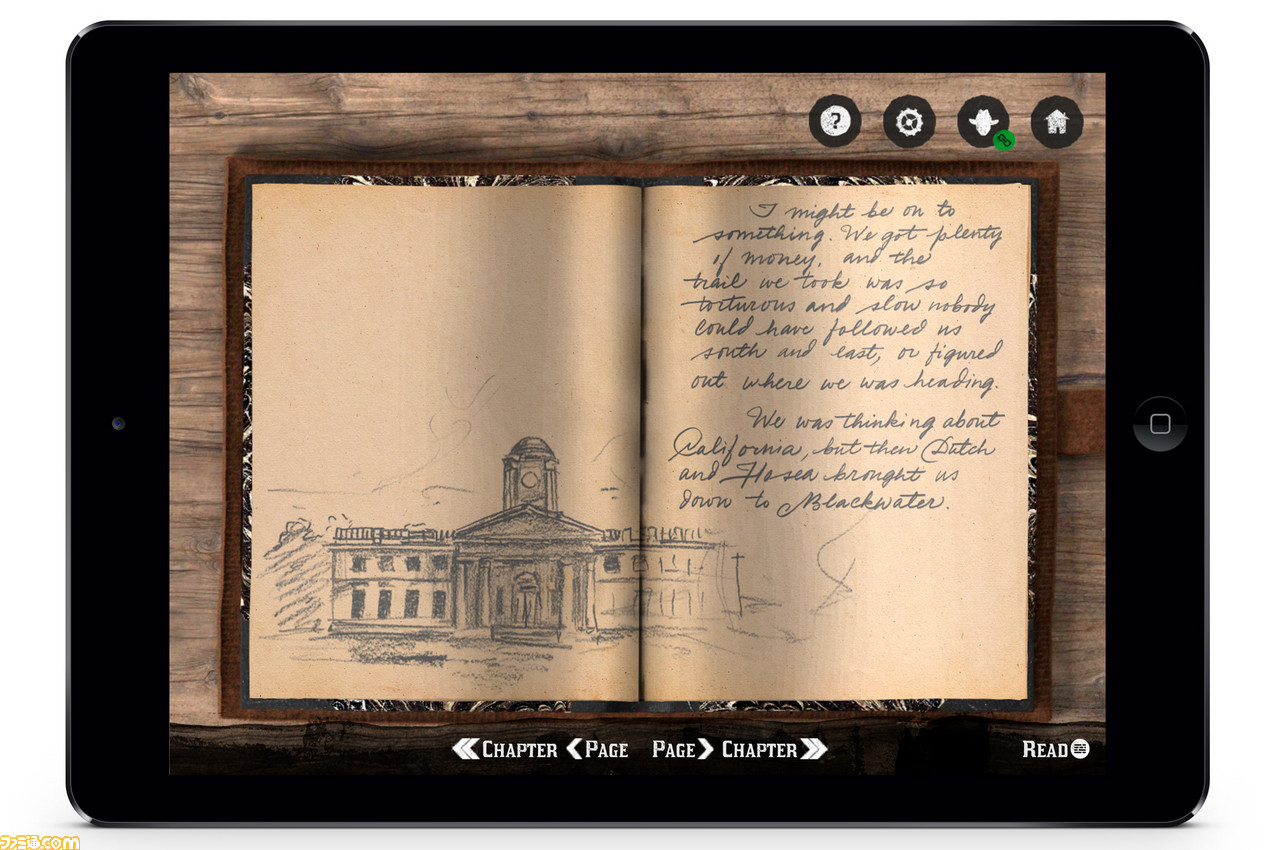 ?
I might be on to
something. We got plenty
of money, and the
trail we took was so
torturous and slow nobody
could have followed us
south and east, or figured
out where we was heading.
We was thinking about
California, but then Dutch
and Hosea brought us
down to Blackwater.
CHAPTER PAGE PAGE CHAPTER READ
ファミ通.com